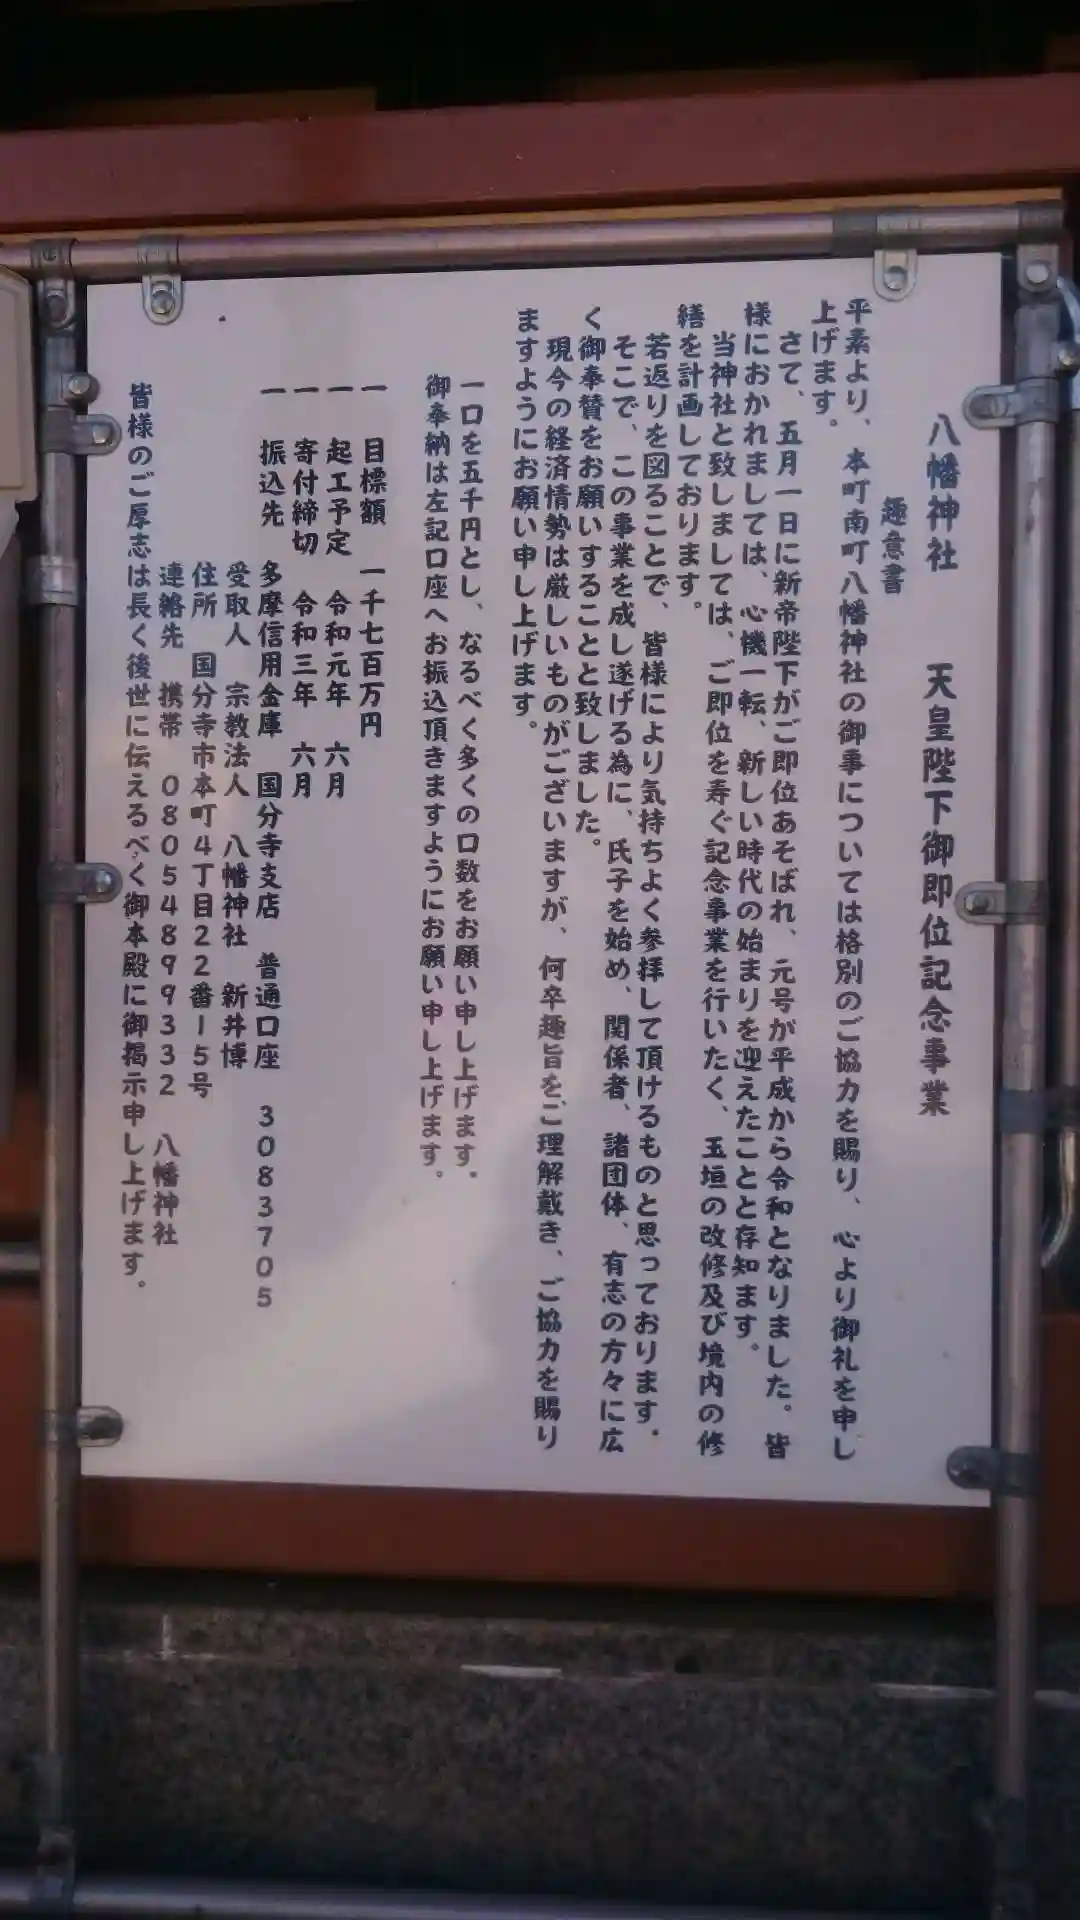 八幡神社　天皇陛下御即位記念事業
趣意書
平素より、本町南町八幡神社の御事については格別のご協力を賜り、心より御礼を申し
上げます。
さて、五月一日に新帝陛下がご即位あそばれ、元号が平成から令和となりました。皆
様におかれましては、心機一転、新しい時代の始まりを迎えたことと存知ます。
当神社と致しましては、ご即位を寿ぐ記念事業を行いたく、玉垣の改修及び境内の修
繕を計画しております。
若返りを図ることで、皆様により気持ちよく参拝して頂けるものと思っております.
そこで、この事業を成し遂げる為に、氏子を始め、関係者、諸団体、有志の方々に広
く御奉賛をお願いすることと致しました。
現今の経済情勢は厳しいものがございますが、何卒趣旨をご理解戴き、ご協力を賜り
ますようにお願い申し上げます。
一口を五千円とし、なるべく多くの口数をお願い申し上げます.
御奉納は左記口座へお振込頂きますようにお願い申し上げます.
一　目標額　一千七百万円
一　起工予定　令和元年　六月
一　寄付締切　令和三年　六月
一　振込先　多摩信用金庫　国分寺支店　普通口座　3083705
受取人　宗教法人　八幡神社　新井博
住所　国分寺市本町4丁目22番15号
連絡先　携帯　08054899332　八幡神社
皆様のご厚志は長く後世に伝えるべく御本殿に御掲示申し上げます。